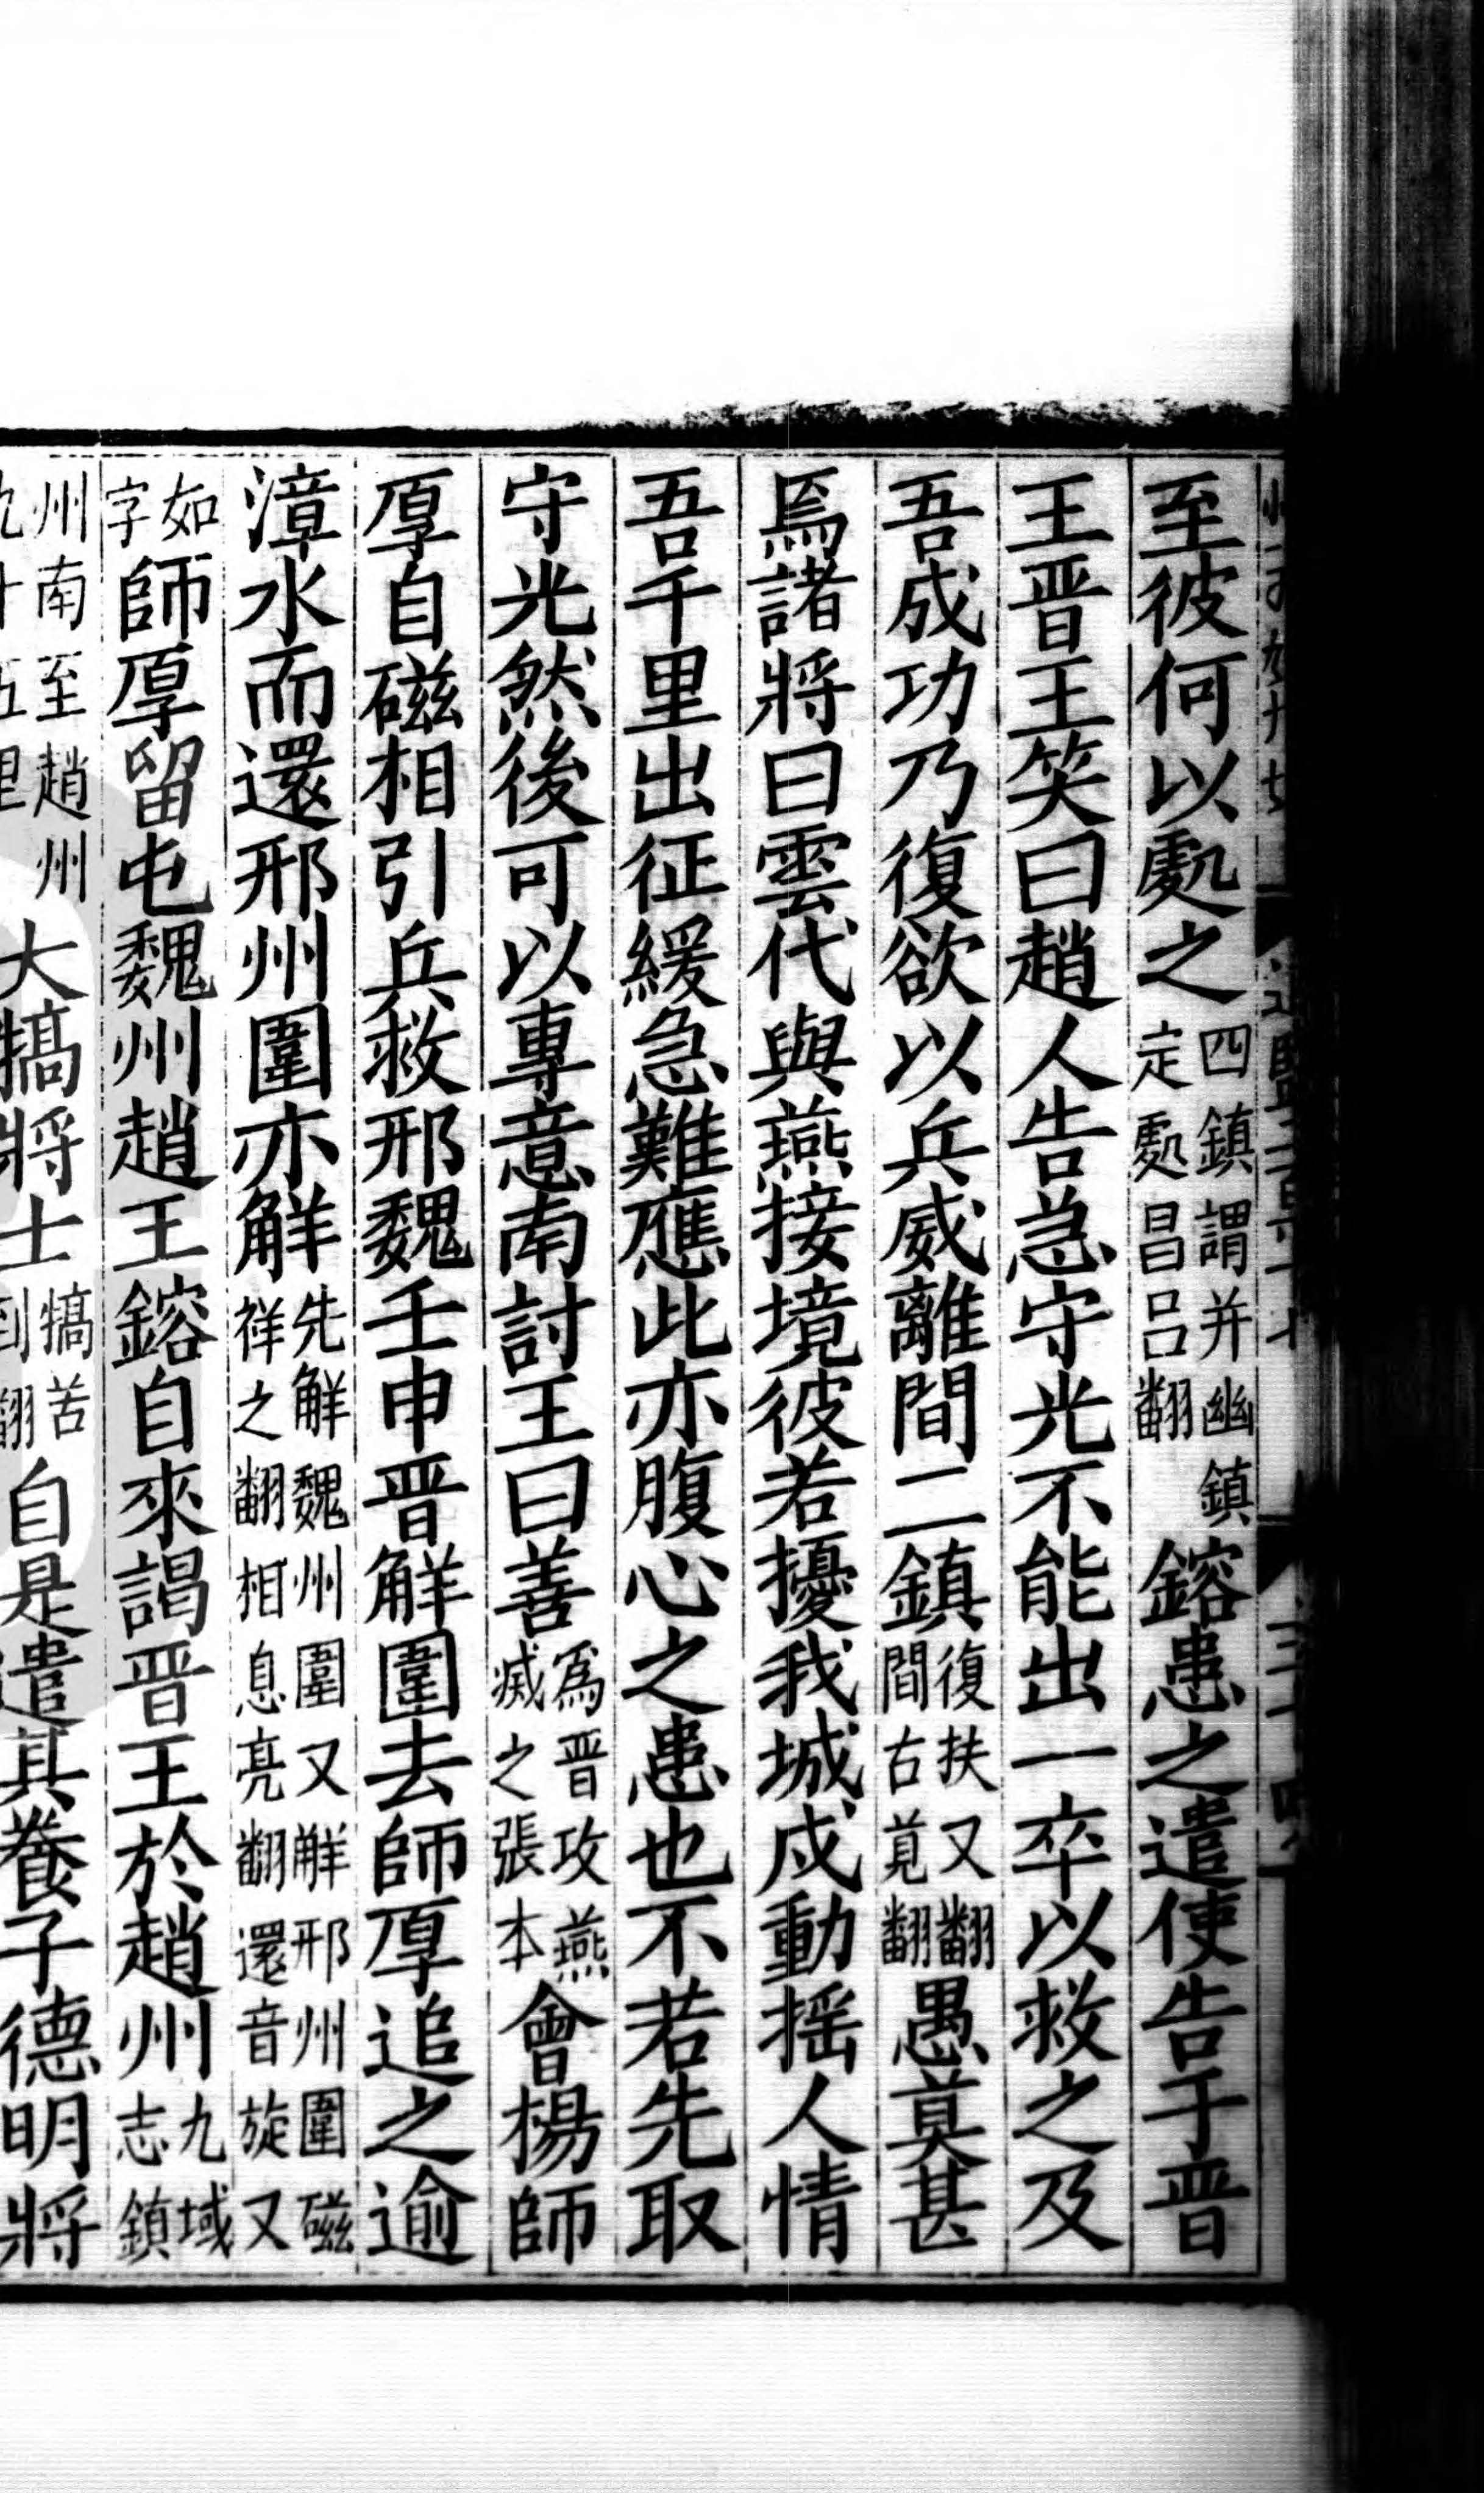 至彼何以處之四鎮謂并幽鎮定處昌呂翻鎔患之遣使告于晋
王晋王笑曰趙人告急守光不能出一卒以救之及
吾成功乃復欲以兵威離間二鎮復扶又翻間古莧翻愚莫甚
焉諸將曰雲代與燕接境彼若擾我城戍動揺人情
吾千里出征緩急難應此亦腹心之患也不若先取
守光然後可以專意南討王曰善爲晋攻燕滅之張本會楊師
厚自磁相引兵救邢魏壬申晋解圍去師厚追之逾
漳水而還邢州圍亦解先解魏州圍又解邢州圍磁祥之翻相息亮翻還音旋又
如字師厚留屯魏州趙王鎔自來謁晋王於趙州九域志鎮
州南至趙州九十五里大犒將士犒苦到翻自是遣其養子德明將